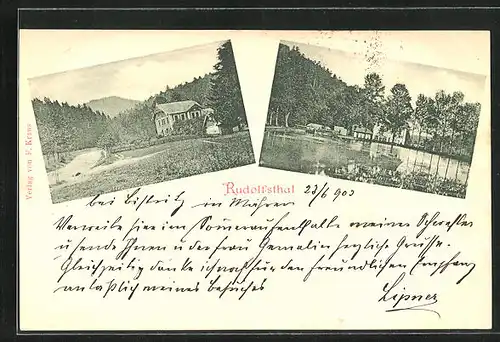 Verlag von F. Krause
Rudolfsthal 23/6 903
bei Bistritz in Mähren
Verweile hier im Sommeraufenthalte meines
u sende Ihnen u der Frau Gemalin herzliche Grüsse.
Gleichzeitig danke ich noch für den freundlichen Empfang
anläßlich meines Besuches
Lipner